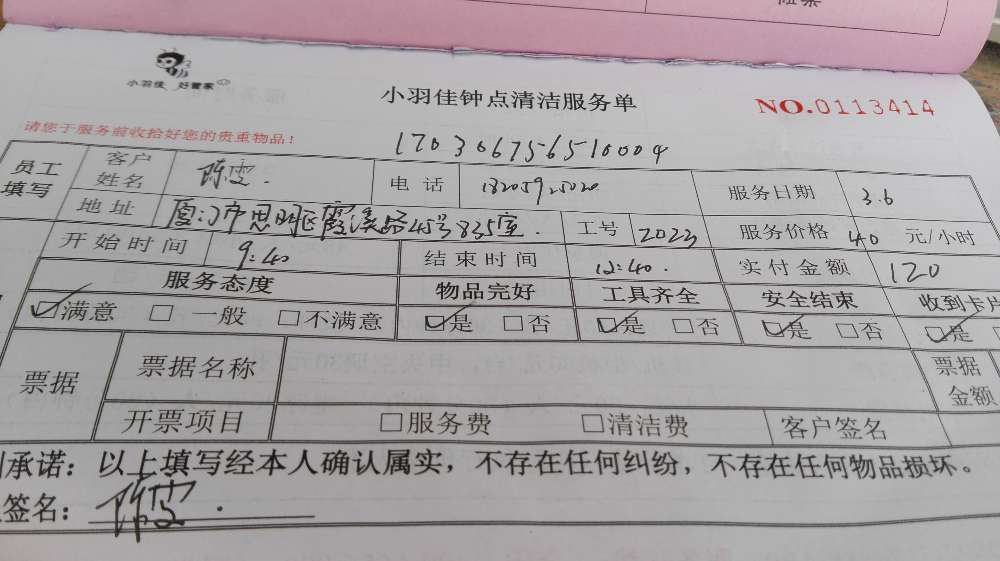 小羽佳 好管家
小羽佳钟点清洁服务单
NO.0113414
请您于服务前收拾好您的贵重物品！
170306756510004
员工填写 客户姓名 陈雯. 电话 18205925020 服务日期 3.6
地址 厦门市思明区霞溪路45号835室. 工号 2023 服务价格 40 元/小时
开始时间 9:40 结束时间 12:40. 实付金额 120
服务态度 物品完好 工具齐全 安全结束 收到卡片
☑满意 □一般 □不满意 ☑是 □否 ☑是 □否 ☑是 □否 ☑是
票据 票据名称 票据金额
开票项目 □服务费 □清洁费 客户签名
承诺：以上填写经本人确认属实，不存在任何纠纷，不存在任何物品损坏。
签名：陈雯.